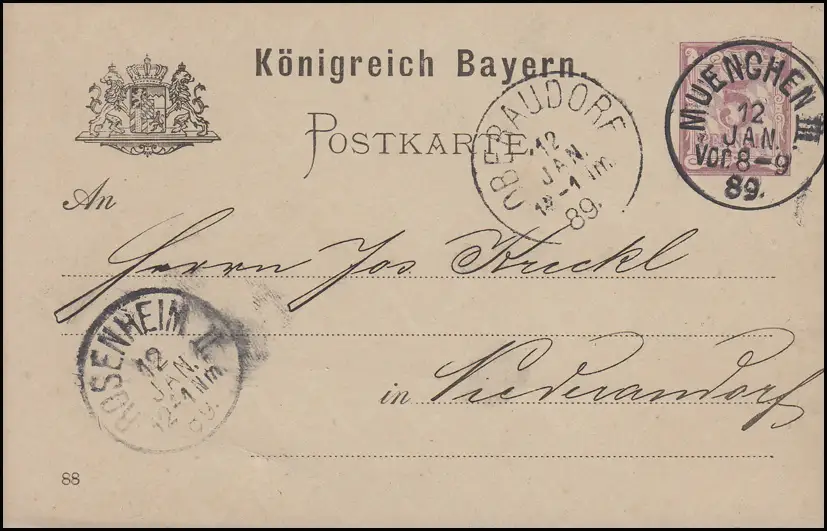 Königreich Bayern.
POSTKARTE.
MUENCHEN III.
12
JAN.
Vor. 8-9
89.
OBERAUDORF
12
JAN.
12-1 Nm.
89.
An
Herrn Jos Kreckl
ROSENHEIM II.
12
JAN.
12-1 Nm.
89.
in Niederaudorf
88